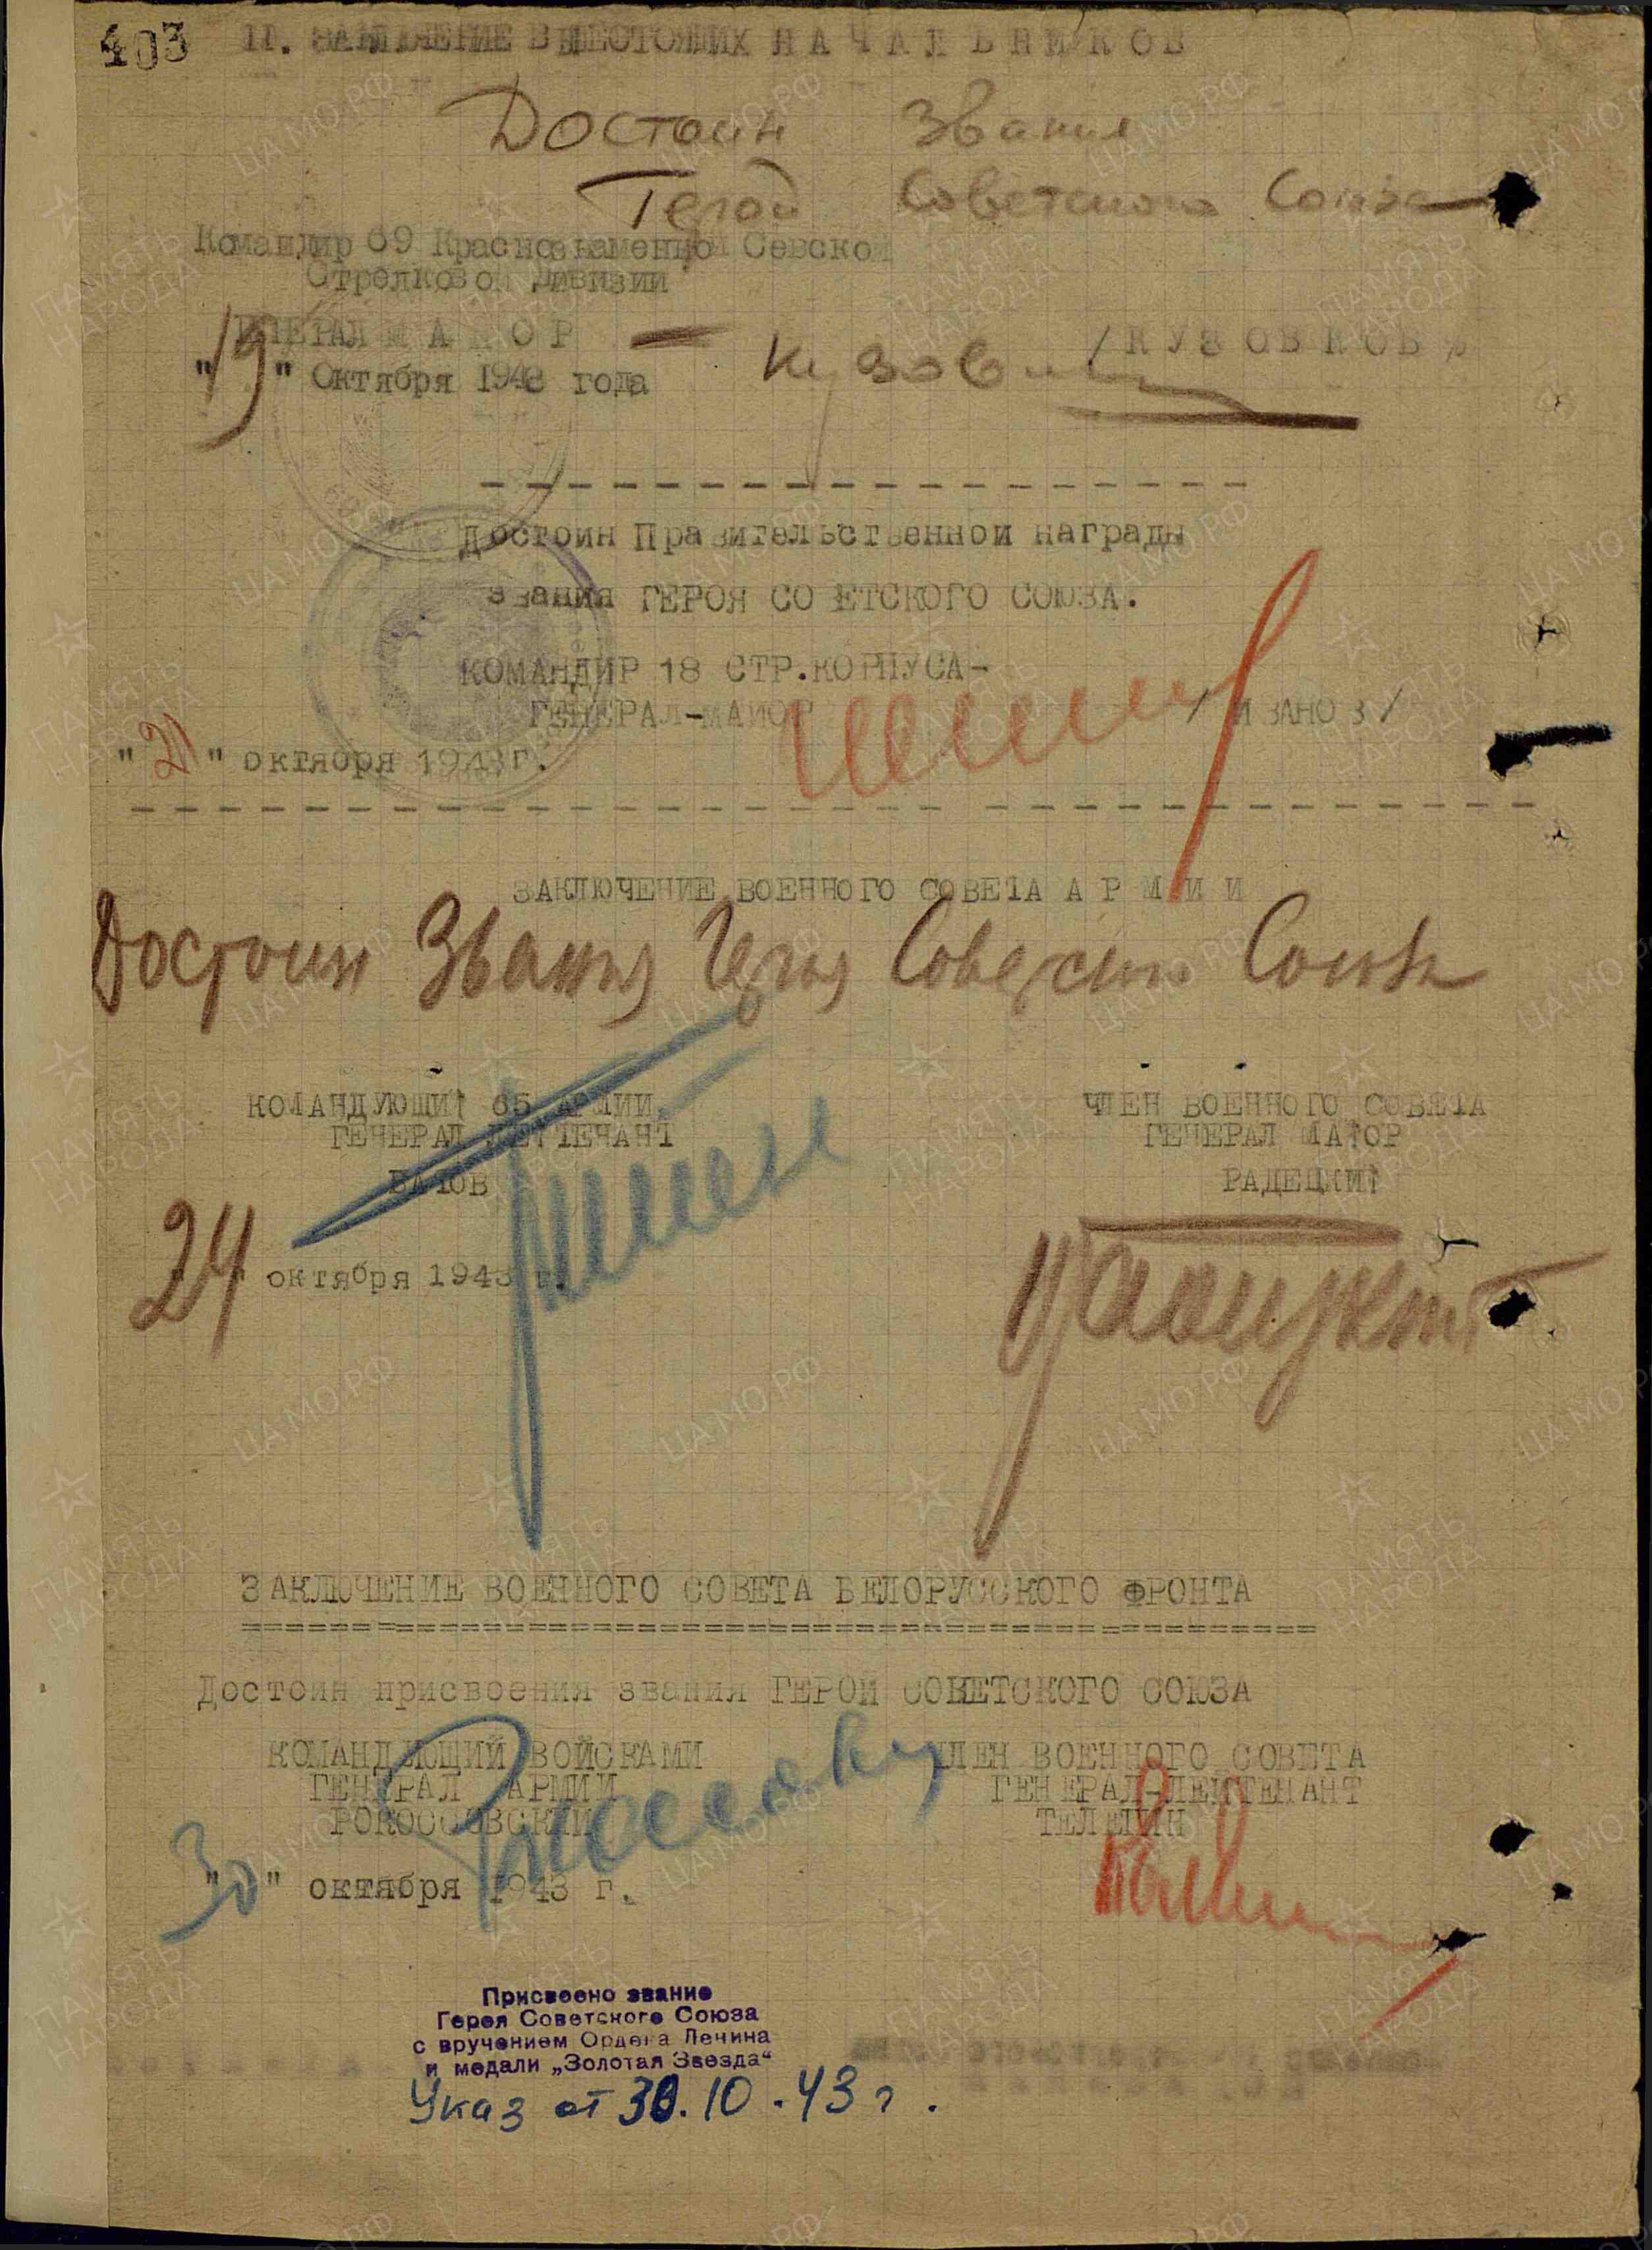 403 II. ЗАКЛЮЧЕНИЕ ВЫШЕСТОЯЩИХ НАЧАЛЬНИКОВ
Достоин Звания
Герой Советского Союза
Командир 69 Краснознаменно Севской
Стрелковой дивизии
ГЕНЕРАЛ МАЙОР /КУЗОВКОВ/
"19" Октября 1943 года
Достоин Правительственной награды
звания ГЕРОЯ СО ЕТСКОГО СОЮЗА.
КОМАНДИР 18 СТР.КОРПУСА-
ГЕНЕРАЛ-МАЙОР /ИВАНОВ/
"21" октября 1943г.
ЗАКЛЮЧЕНИЕ ВОЕННОГО СОВЕТА АРМИИ
Достоин Звания Героя Советск Союза
КОМАНДУЮЩИЙ 65 АРМИИ ЧЛЕН ВОЕННОГО СОВЕТА
ГЕНЕРАЛ ЛЕЙТЕНАНТ ГЕНЕРАЛ МАЙОР
БАТОВ РАДЕЦКИЙ
24 " октября 1943 г.
ЗАКЛЮЧЕНИЕ ВОЕННОГО СОВЕТА БЕЛОРУССКОГО ФРОНТА
Достоин присвоения звания ГЕРОЙ СОВЕТСКОГО СОЮЗА
КОМАНДУЮЩИЙ ВОЙСКАМИ ЧЛЕН ВОЕННОГО СОВЕТА
ГЕНЕРАЛ АРМИИ ГЕНЕРАЛ-ЛЕЙТЕНАНТ
РОКОССОВСКИЙ ТЕЛЕГИН
"30" октября 1943 г.
Присвоено звание
Героя Советского Союза
с вручением Ордена Ленина
и медали „Золотая Звезда“
Указ от 30.10.43 г.